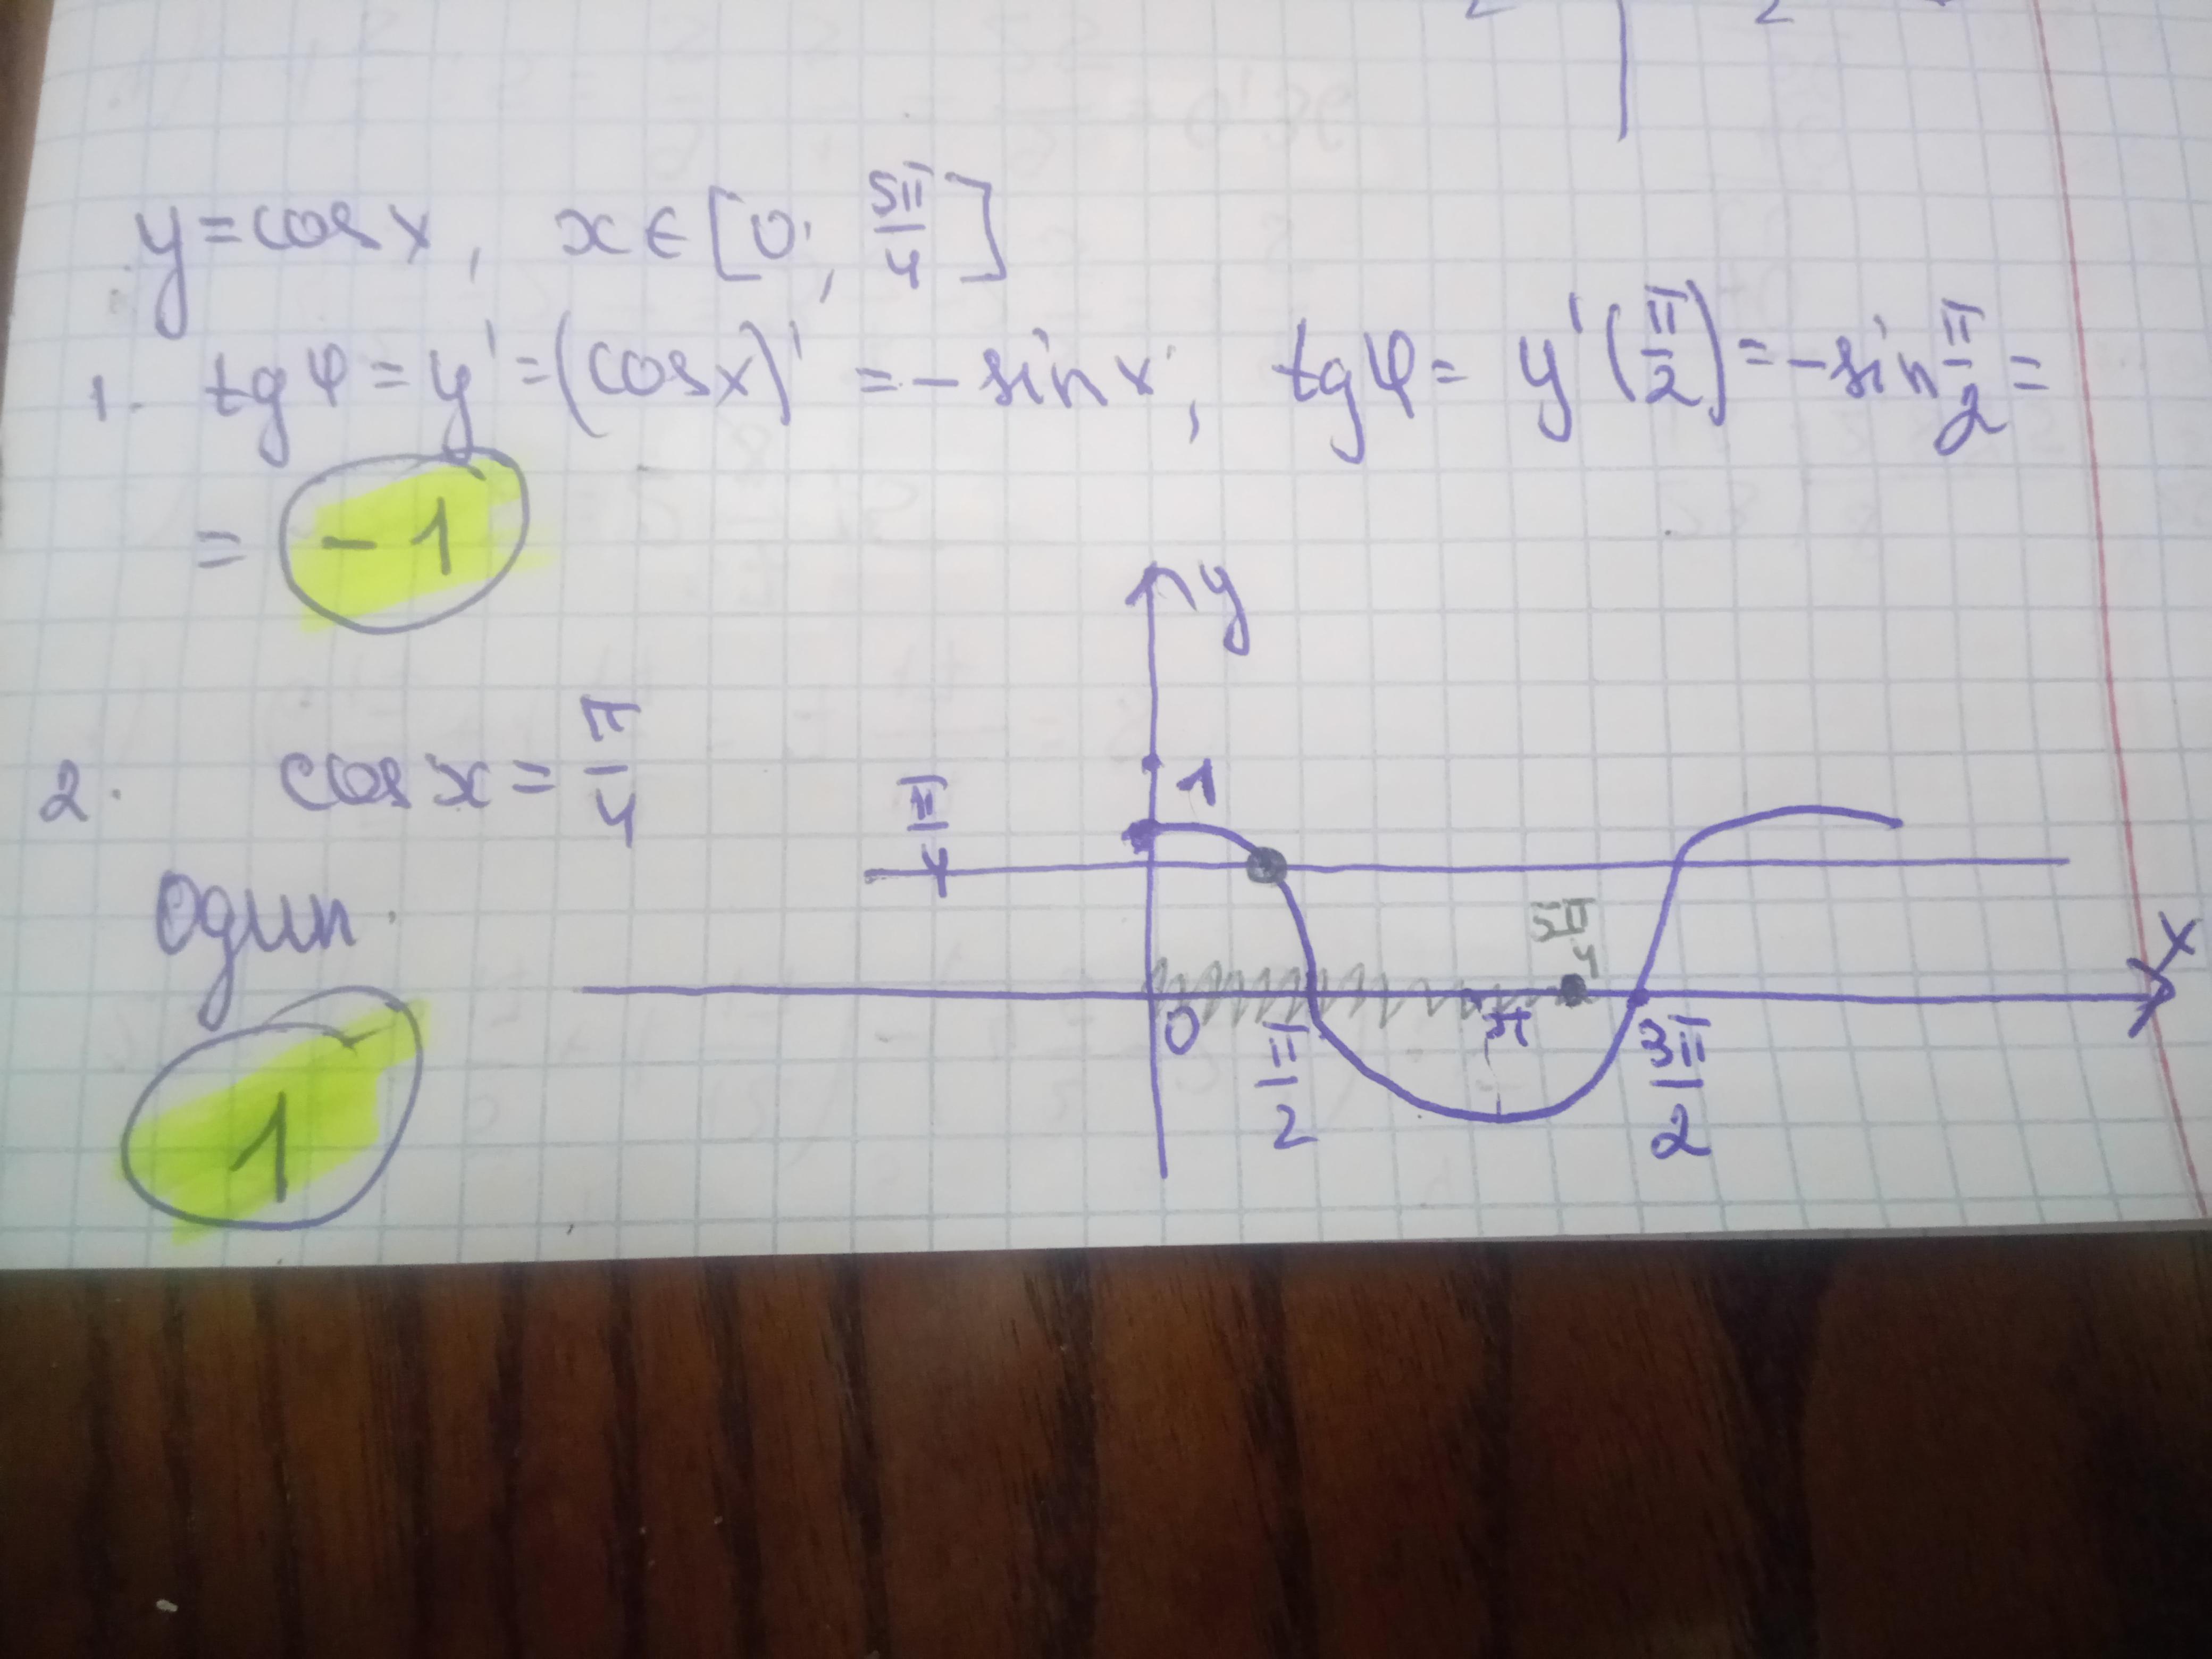 y = cos x, x ∈ [0; 5π/4]
1. tg φ = y' = (cos x)' = - sin x, tg φ = y'(π/2) = - sin π/2 =
= -1
y
2. cos x = π/4
1
π/4
один.
5π/4
x
0
π/2
π
3π/2
1